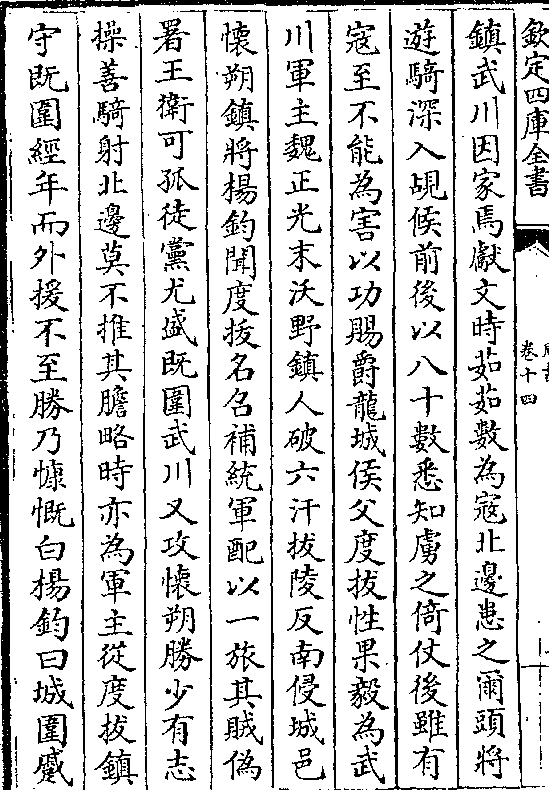 欽定四庫全書
卷十四
鎮武川因家焉獻文時茹茹數為寇北邊患之爾頭將
遊騎深入覘候前後以八十數悉知虜之倚仗後雖有
寇至不能為害以功賜爵龍城侯父度拔性果毅為武
川軍主魏正光末沃野鎮人破六汗拔陵反南侵城邑
懷朔鎮將楊鈞聞度拔名召補統軍配以一旅其賊偽
署王衛可孤徒黨尤盛既圍武川又攻懷朔勝少有志
操善騎射北邊莫不推其膽略時亦為軍主從度拔鎮
守既圍經年而外援不至勝乃慷慨白楊鈞曰城圍蹙